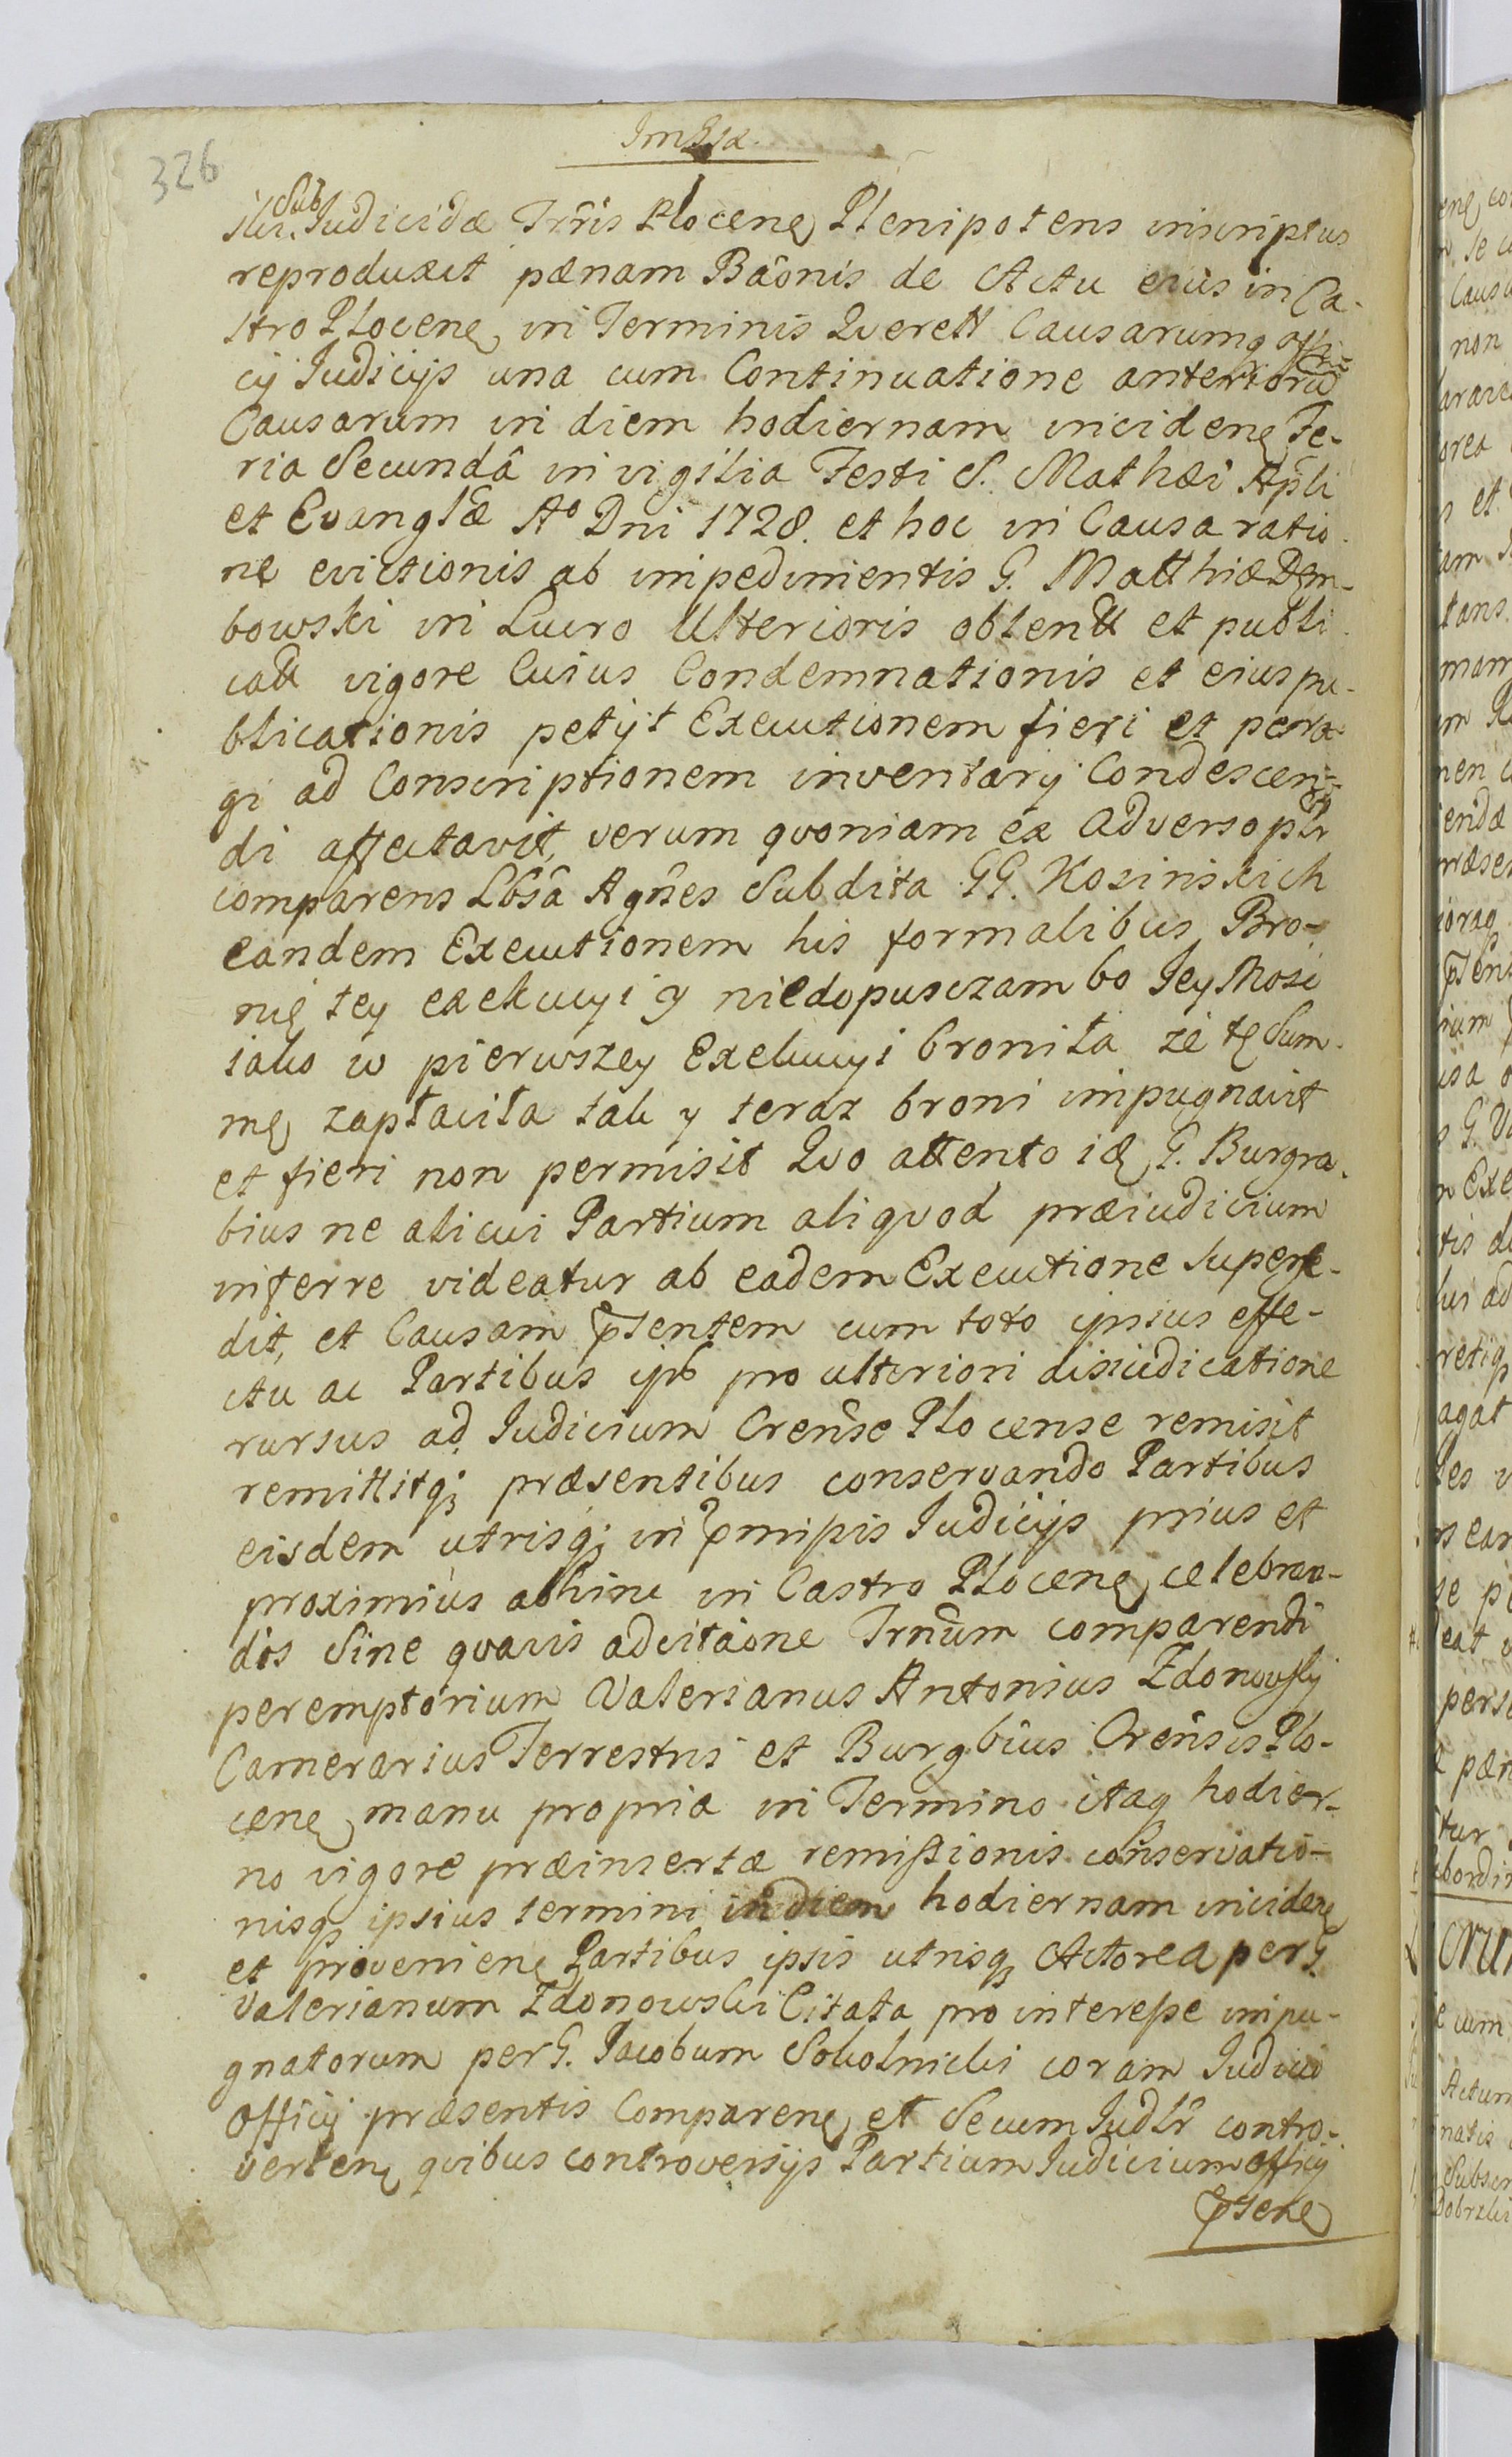 326
ski. SubIudicidæ Trris Plocen Plenipotens inscriptus
reproduxit pænam Bãonis de Actu eius in Ca-
stro Plocen in Terminis Querell Causarumq offi-
cij Iudicijs una cum Continuatione anteriorũ
Causarum in diem hodiernam inciden Fe-
ria Secundâ in vigilia Festi S. Mathæi Apli
et Evanglæ Ao Dni 1728. et hoc in Causa ratio-
ne evictionis ab impedimentis G. Matthiæ Dem-
bowski in Lucro Ulterioris obtentt et publi-
catt vigore Cuius Condemnationis et eius pu-
blicationis petijt Executionem fieri et pera-
gi ad Conscriptionem inventarij Condescen-
di affectavit, verum qvoniam ex Adverso ptr
comparens Lbsâ Agñes Subdita GG. Kosinskich
eandem Executionem his formalibus Bro-
nię tey exekucyi y niedopusczam bo Jey Mosc
iako w pierwszey Exekucyi broniła ze tę Sum-
mę zapłaciła tak y teraz broni impugnavit
et fieri non permisit Qvo attento id G. Burgra-
bius ne alicui Partium aliqvod præiudicium
inferre videatur ab eadem Executione Superse-
dit, et Causam pstentem cum toto ipsius effe-
ctu ac Partibus ips pro ulteriori disiudicatione
rursus ad Iudicium Creñse Plocense remisit
remittitq; præsentibus conservando Partibus
eisdem utrisq; in pmissis Iudicijs prius et
proximius abhinc in Castro Plocen celebran-
dis Sine qvavis adcitãone Trnũm comparendi
peremptorium Valerianus Antonius Zdonowsky
Camerarius Terrestris et Burgbius Creñsis Plo-
cen manu propria in Termino itaq hodier-
no vigore præinsertæ remissionis conservatio-
nisq ipsius termini in diem hodiernam inciden
et provenien Partibus ipsis utrisq Actorea per G.
Valerianum Zdonowski Citata pro interesse impu-
gnatorum per G. Jacobum Sokolnicki coram Iudicio
Officij præsentis Comparen et Secum Iudlr contro-
verten qvibus controversijs Partium Iudicium officij
psten